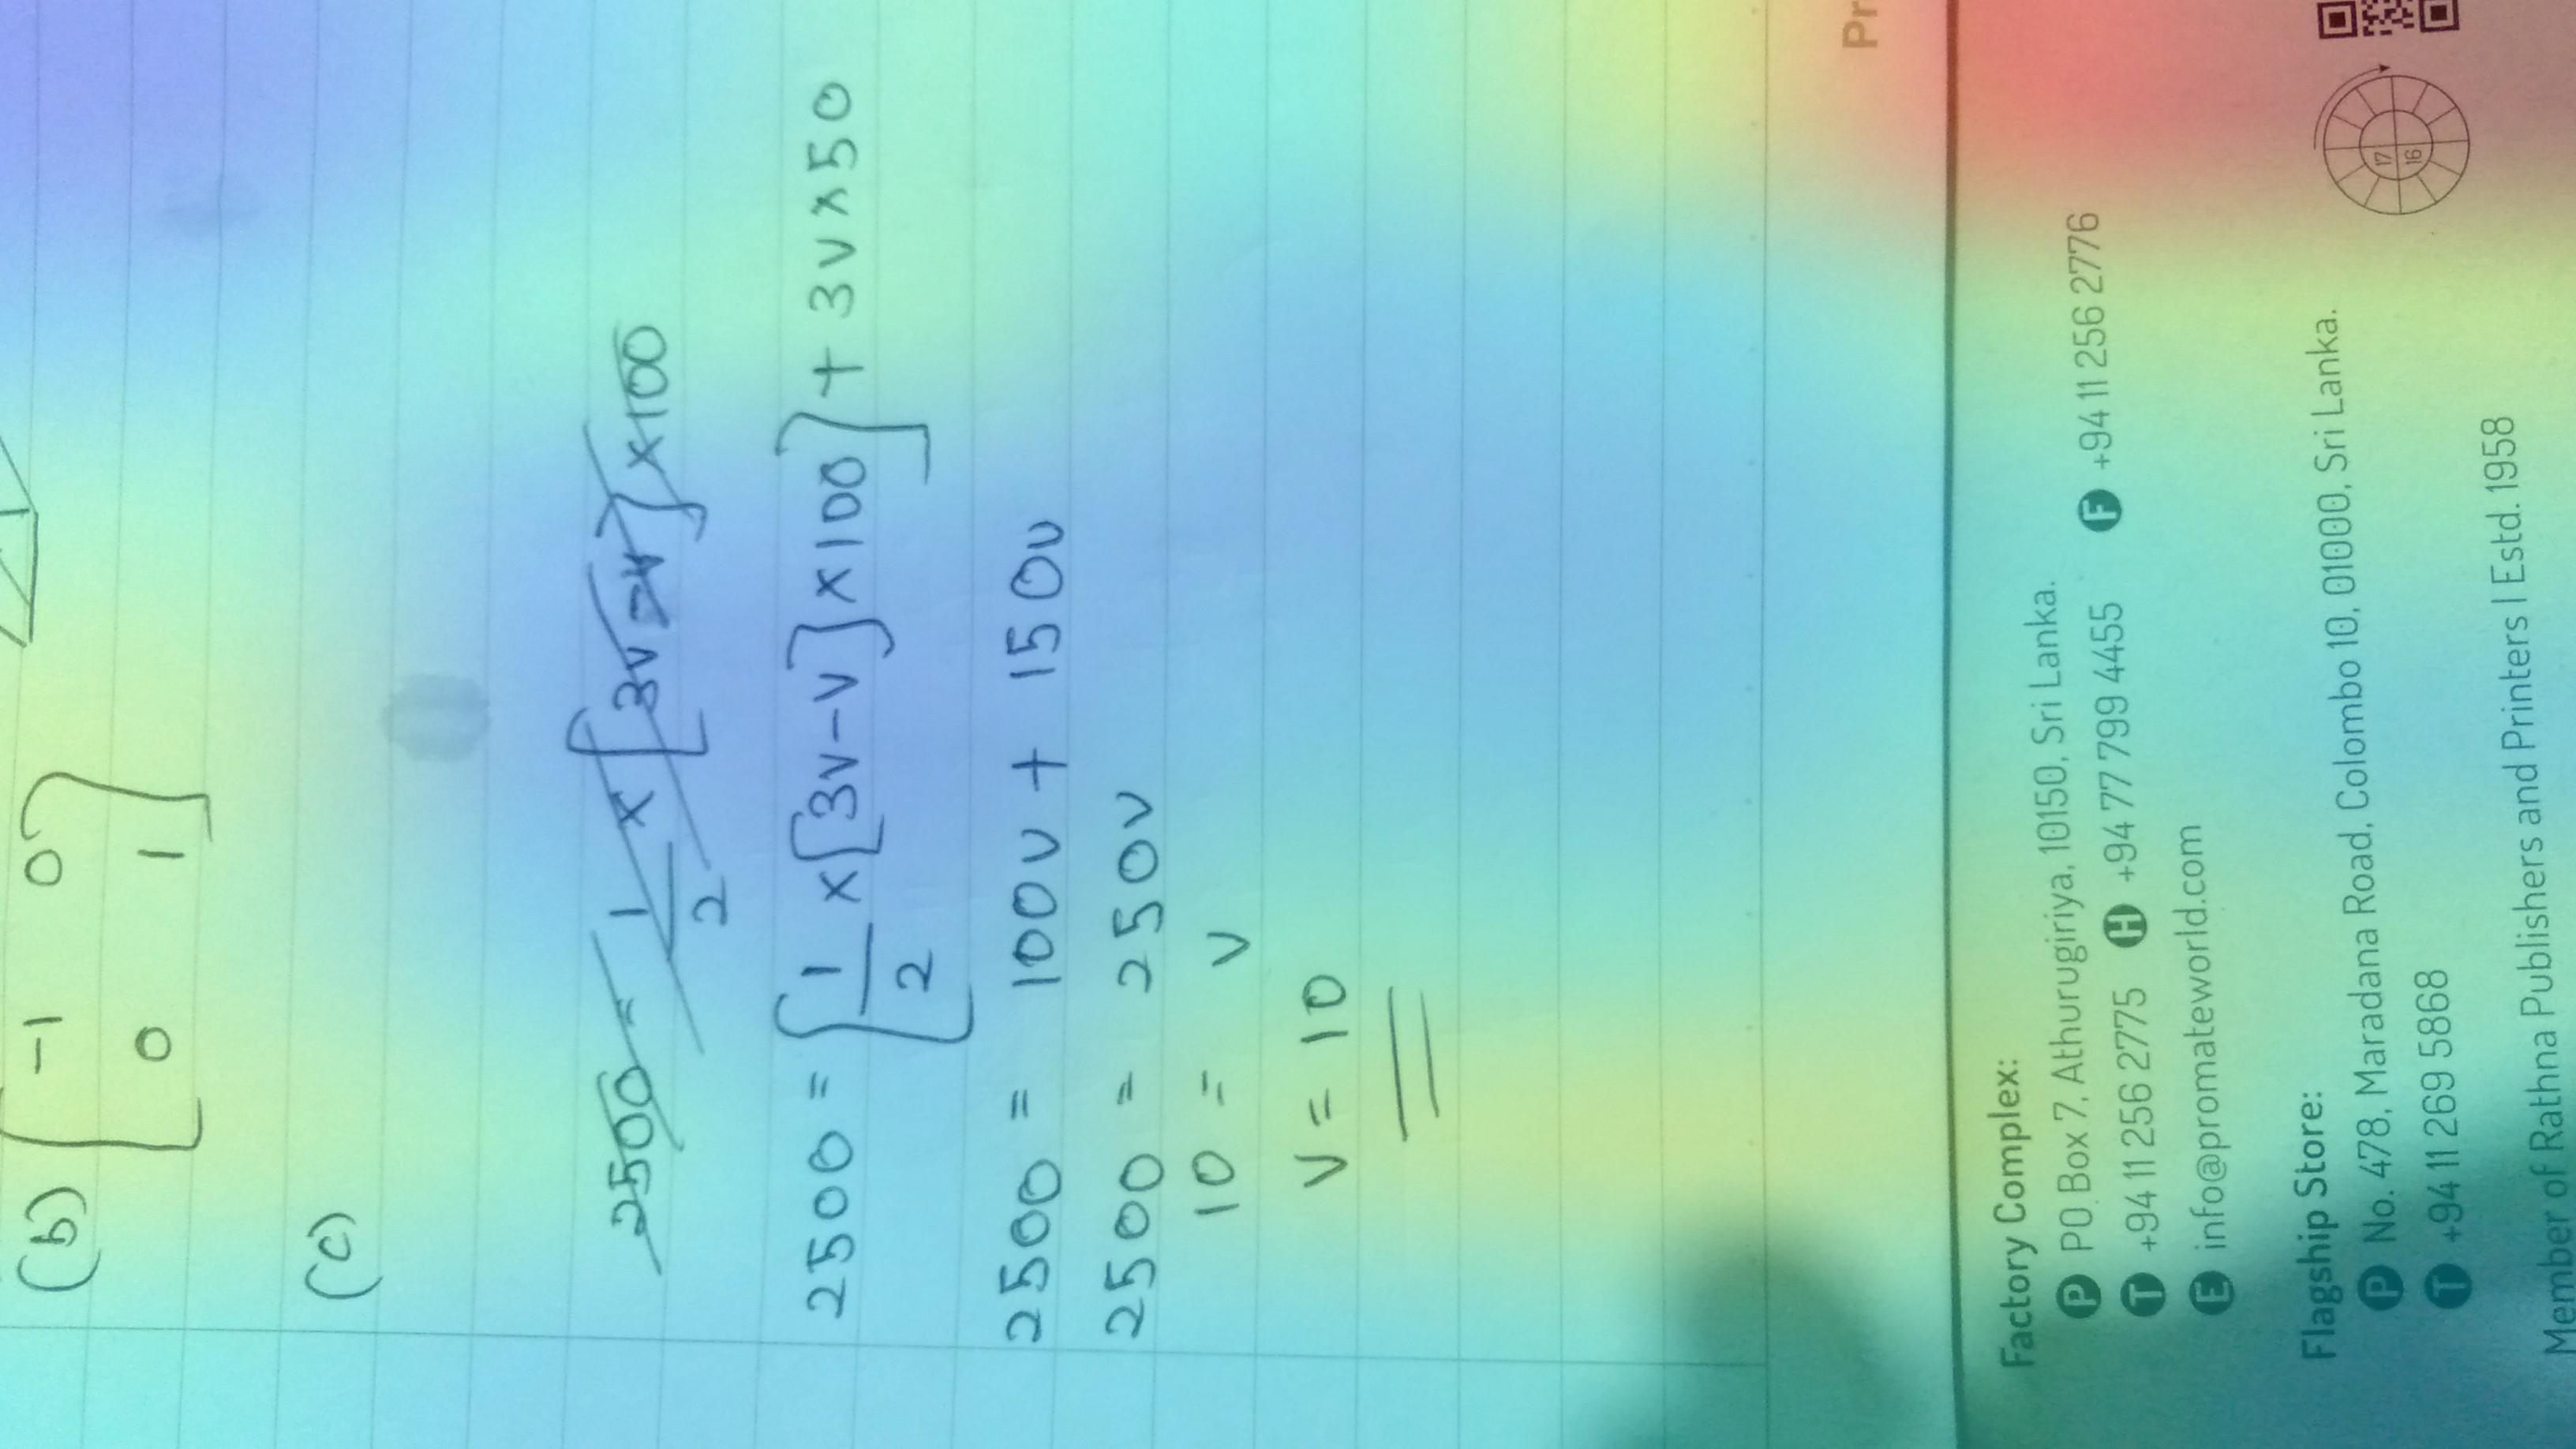 (b) [ -1 0
0 1 ]
(c)
2500 = 1/2 × [3v-v] × 100
2500 = [ 1/2 × [3v-v] × 100 ] + 3v × 50
2500 = 100v + 150v
2500 = 250v
10 = v
v = 10
Pr
Factory Complex:
P PO Box 7, Athurugiriya, 10150, Sri Lanka.
T +94 11 256 2775 H +94 77 799 4455 F +94 11 256 2776
E info@promateworld.com
Flagship Store:
P No. 478, Maradana Road, Colombo 10, 01000, Sri Lanka.
T +94 11 269 5868
17
16
Member of Rathna Publishers and Printers | Estd. 1958